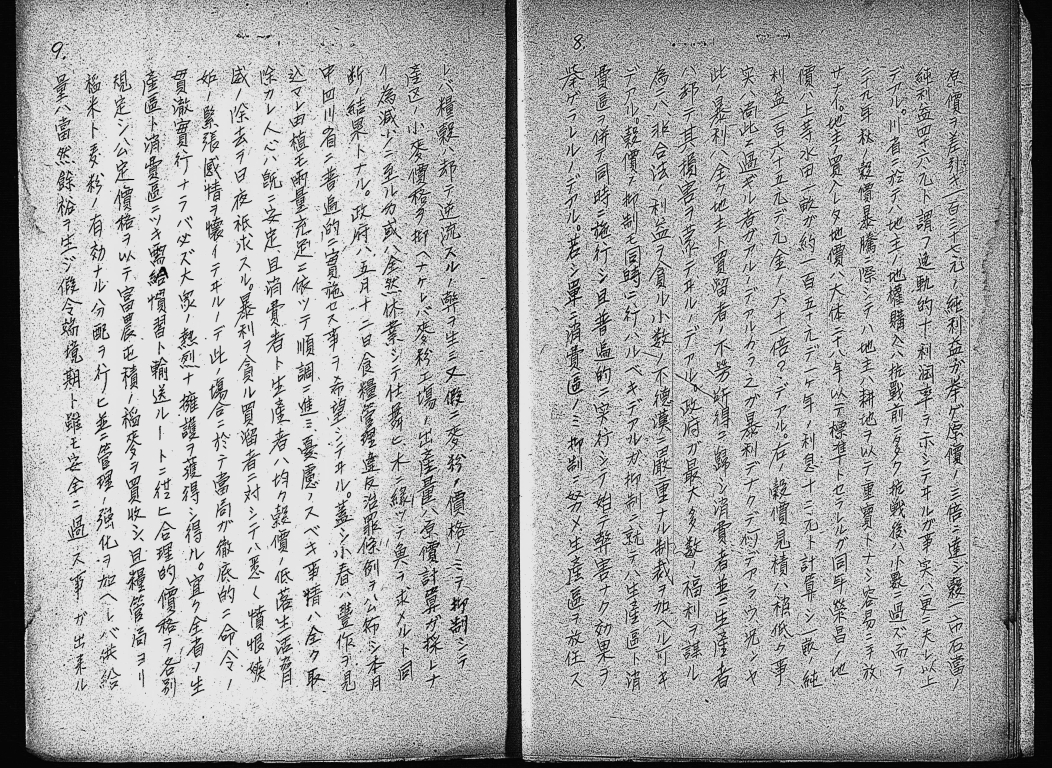 8.
原價ヲ差引キ一百三十七元ノ純利益ガ挙ゲ原價ノ三倍ニ達シ穀一市石當ノ
純利益四十六元ト謂フ逆軌的十利潤率ヲ示シテヰルガ事実ハ更ニ夫レ以上
デアル。川省ニ於テハ地主ノ地權購入ハ抗戰前ニ多ク抗戰後ハ小數ニ過ズ而テ
三九年秋ノ穀價暴騰ニ際シテハ地主ハ耕地ヲ以テ重寶トナシ容易ニ手放
サナイ。地主ノ買入レタ地價ハ大体二十八年以テ標準トセラレルガ同年榮昌ノ地
價ハ上等水田一畝ガ約一百五十元デ一ケ年ノ利息十二元ト計算シ一畝純
利益一百六十五元デ元金ノ六十一倍?デアル。右ノ穀價見積ハ稍低ク事
実ハ尚此ニ過ギル者ガアルデアルカラ之ガ暴利デナクテ何デアラウ況ンヤ
此ノ暴利ハ全ク地主ト買留者ノ不労所得ニ歸シ消費者並ニ生産者
ハ却テ其損害ヲ蒙テヰルノデアル。政府ガ最大多數ノ福利ヲ謀ル
為ニハ非合法ノ利益ヲ貪ル小数ノ不徳漢ニ嚴重ナル制裁ヲ加ヘルベキ
デアル。穀價ノ抑制モ同時ニ行ハルベキデアルガ抑制ニ就テハ生産區ト消
費區ヲ併テ同時ニ施行シ且普遍的ニ実行シテ始テ弊害ナク効果ヲ
挙ゲラレルノデアル。若シ單ニ消費區ノミ抑制ニ努メ生産區ヲ放任ス
9.
レバ糧穀ハ却テ逆流スルノ弊ヲ生ミ又假ニ麦粉ノ價格ノミヲ抑制シテ
産区ノ小麥價格ヲ抑ヘナケレバ麥粉工場ノ出産量ハ原價計算ガ採レナ
イ為減少ニ至ルカ或ハ全然休業シテ仕舞ヒ木ニ縁ッテ魚ヲ求メルト同
断ノ結果トナル。政府ハ五月十二日食糧管理違反治罪條例ヲ公佈シ本月
中四川省ニ普遍的ニ實施セン事ヲ希望シテヰル。蓋シ小春ハ豐作ヲ見
込マレ田植モ雨量充足ニ依ッテ順調ニ進ミ憂慮スベキ事情ハ全ク取
除カレ人心ハ既ニ安定且消費者ト生産者ハ均ク穀價ノ低落生活脅
威ノ除去ヲ日夜祇求スル。暴利ヲ貪ル買溜者ニ対シテハ悉ク憤恨嫉
妬ノ緊張感情ヲ懐イテヰルノデ此ノ場合ニ於テ當局ガ徹底的ニ命令ノ
貫徹實行ナラバ必ズ大衆ノ熱烈ナ擁護ヲ獲得シ得ル。宜ク全省ノ生
産區ト消費區ニツキ需給慣習ト輸送ルートニ從ヒ合理的價格ヲ各別
規定シ公定價格ヲ以テ富農屯積ノ稲麥ヲ買收シ且糧管局ヨリ
稲米ト麦粉ノ有効ナル分配ヲ行ヒ並ニ管理ノ強化ヲ加ヘレバ供給
量ハ當然餘裕ヲ生ジ假令端境期ト雖モ安全ニ過ス事ガ出来ル